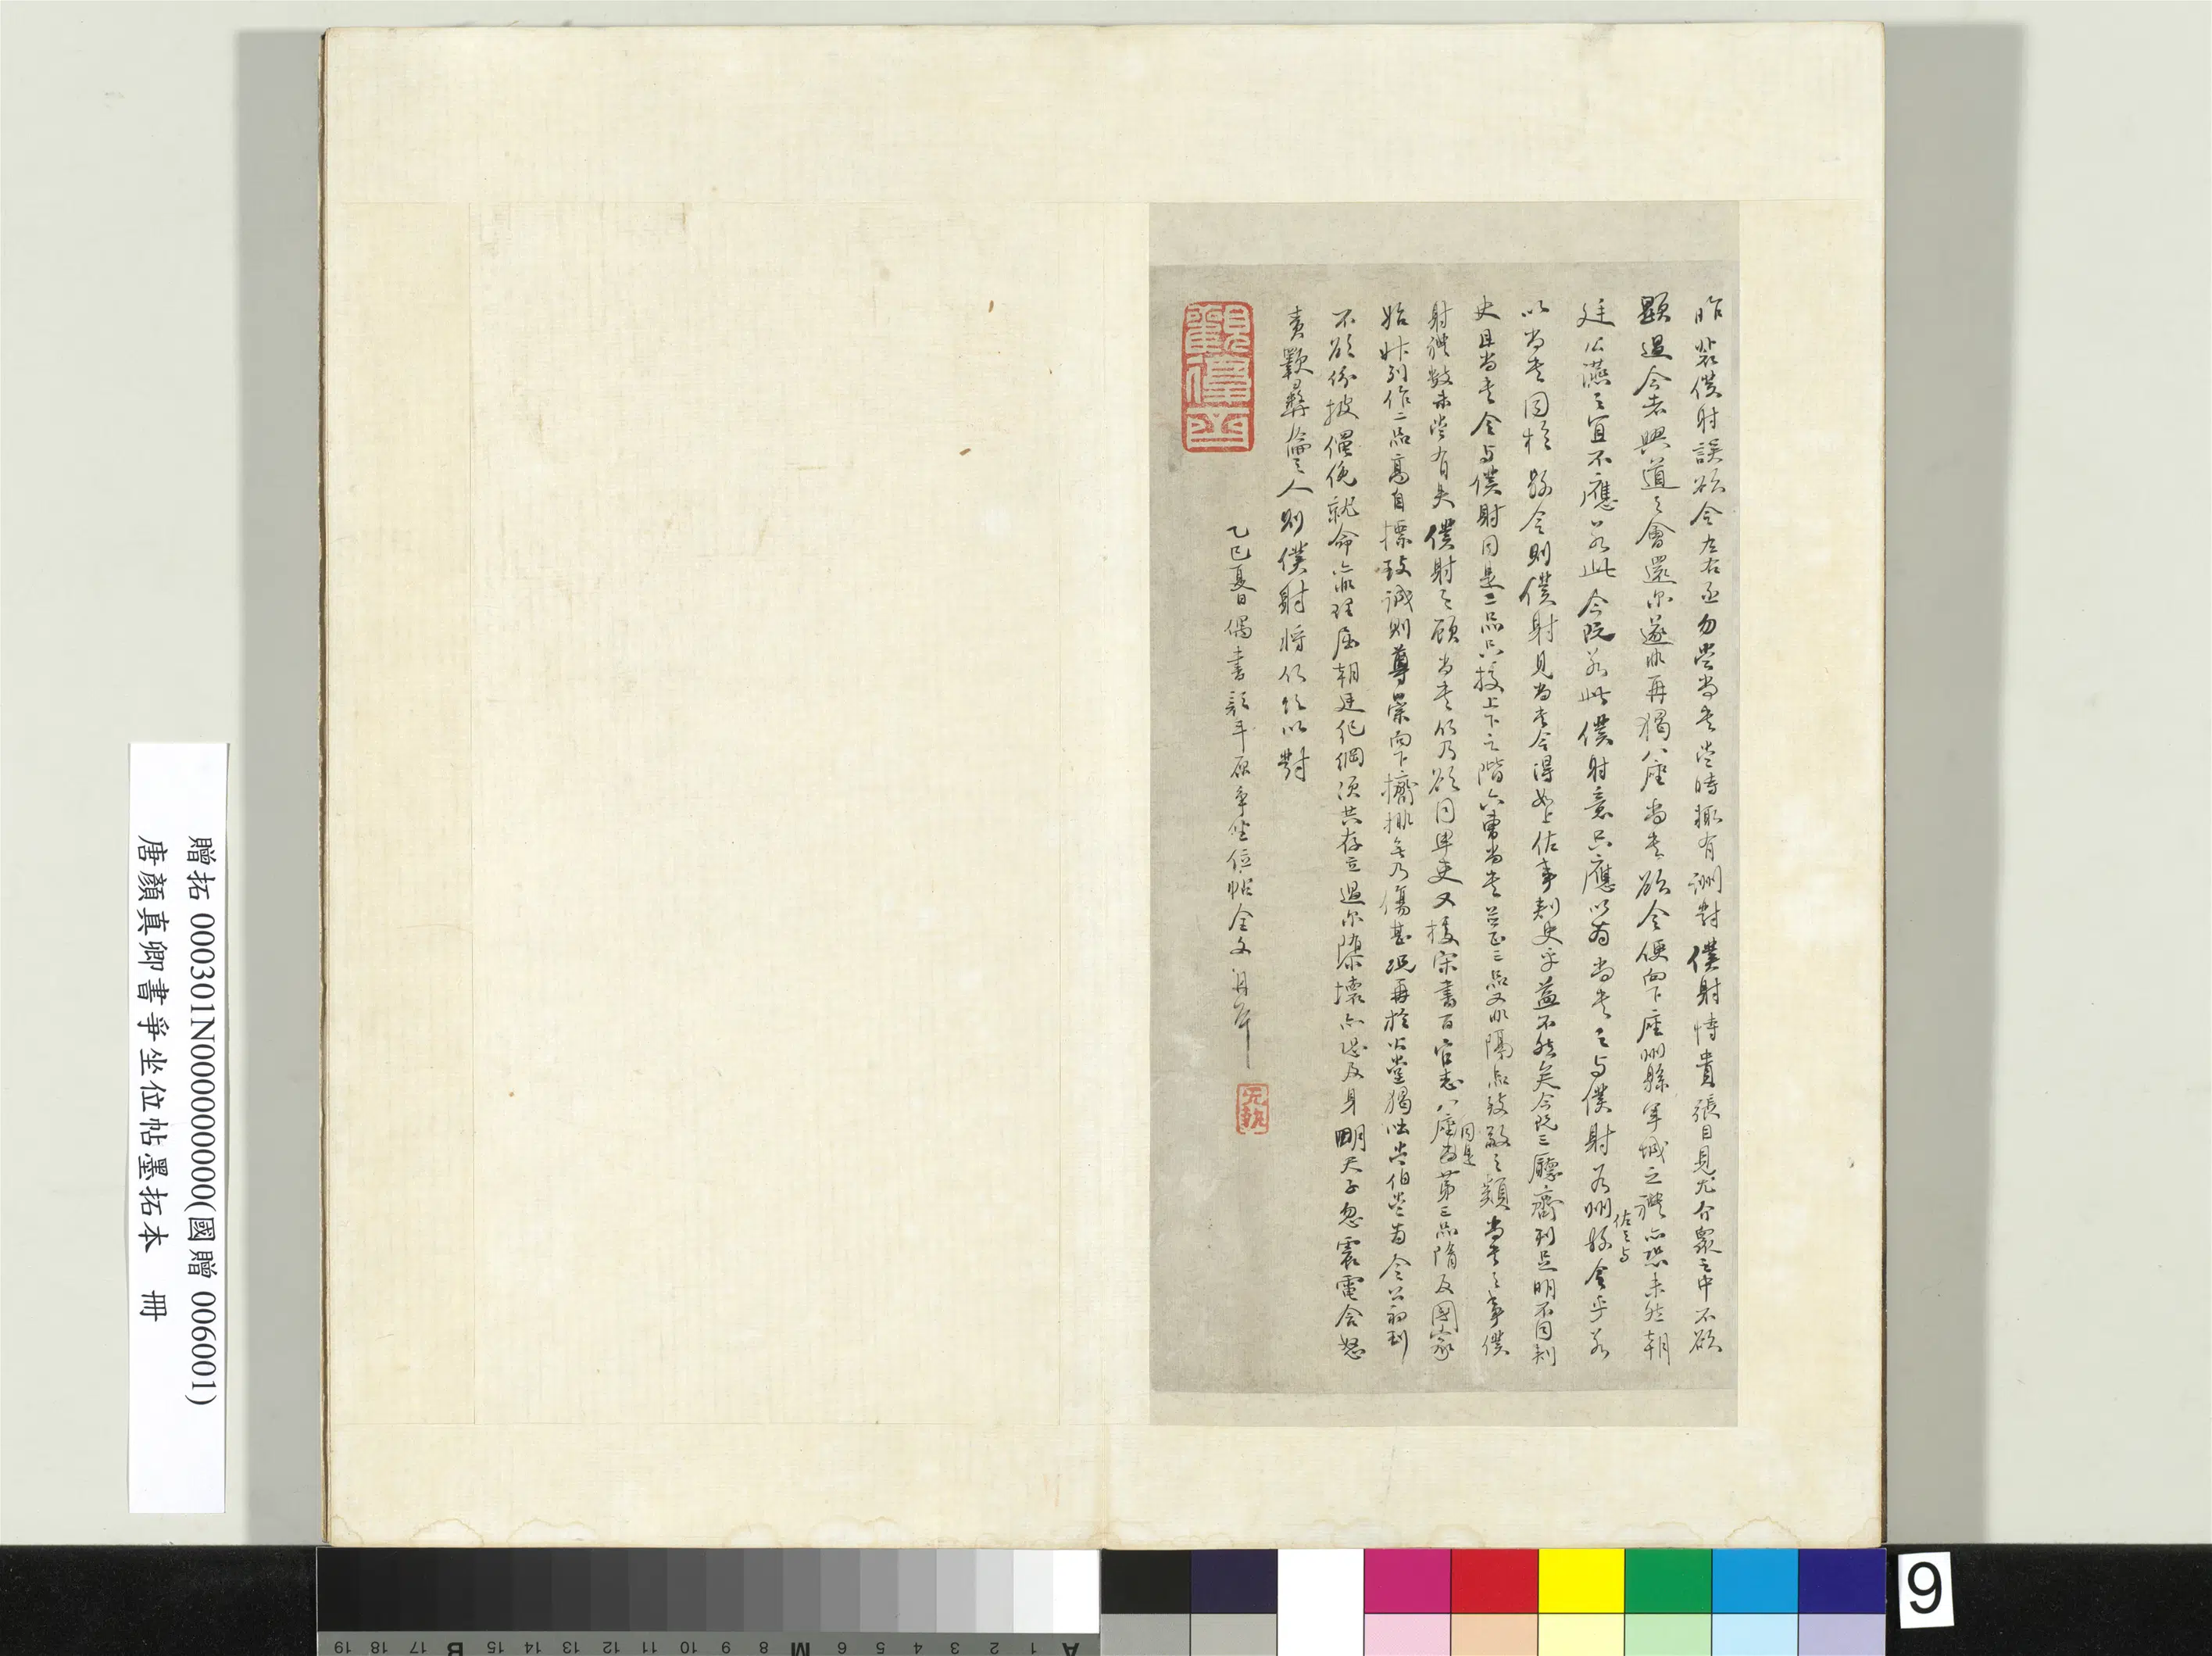 昨裴僕射誤欲令左右丞勿當尚書當時輒有詶對僕射恃貴張目見尤介衆之中不欲
顯過今者興道之會還尔遂非再猲八座尚書欲令便向下座州縣軍城之禮亦恐未然朝
廷公讌之宜不應若此今既若此僕射意只應以爲尚書之与僕射若州佐之与縣令乎若
以尚書同於縣令則僕射見尚書令得如上佐事刺史乎益不然矣今既三廳齊列足明不同刺
史且尚書令与僕射同是二品只校上下之階六曹尚書並正三品又非隔品致敬之類尚書之事僕
射禮數未嘗有失僕射之顧尚書何乃欲同卑吏又據宋書百官志八座同是第三品隋及國家
始升別作二品高自摽致誠則尊崇向下擠排無乃傷甚況再於公堂猲咄常伯當爲令公初到
不欲紛披僶俛就命亦非理屈朝廷紀綱須共存立過尔隳壞亦恐及身明天子忽震電含怒
責斁彝倫之人則僕射將何辭以對
乙巳夏日偶書顏平原爭坐位帖全文
贈拓 000301N000000000(國贈 006001)
唐顏真卿書爭坐位帖墨拓本 冊
9
A 1 2 3 4 5 6 M 8 9 10 11 12 13 14 15 B 17 18 19